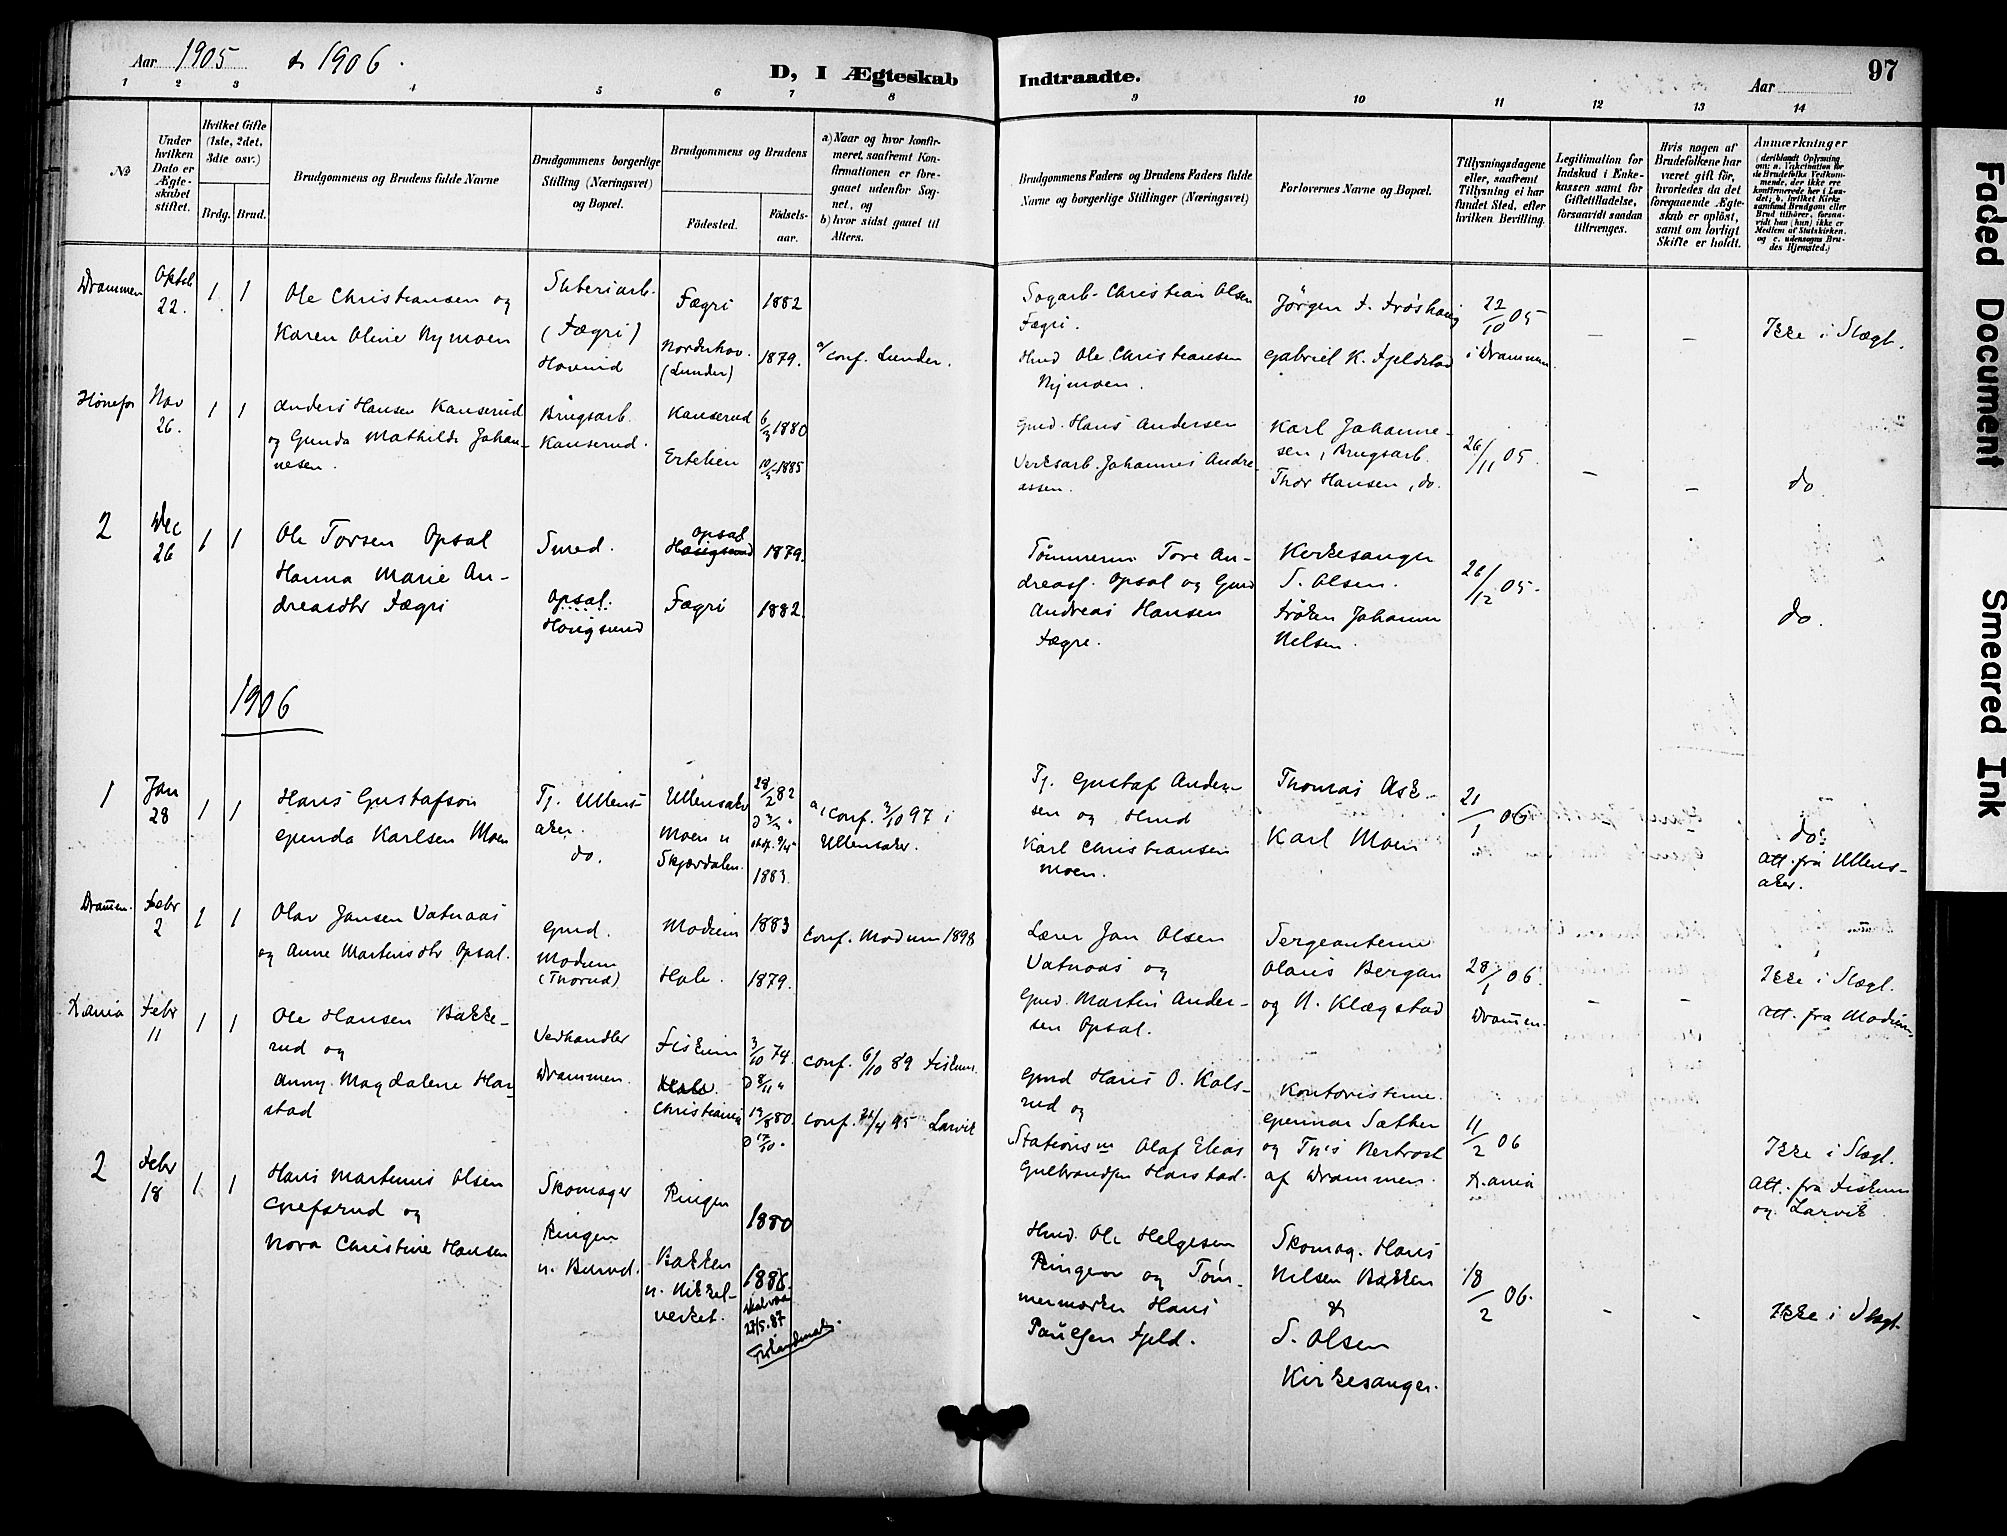 Aar 1905 & 1906.
D, I Ægteskab Indtraadte.
Aar
97
1 2 3 4 5 6 7 8 9 10 11 12 13 14
№
Under hvilken Dato er Ægteskabet stiftet.
Hvilket Gifte (1ste, 2det, 3die osv.)
Brdg. Brud.
Brudgommens og Brudens fulde Navne
Brudgommens borgerlige Stilling (Næringsvei) og Bopæl.
Brudgommens og Brudens
Fødested.
Fødselsaar.
a) Naar og hvor konfirmeret, saafremt Konfirmationen er foregaaet udenfor Sognet, og
b) hvor sidst gaaet til Alters.
Brudgommens Faders og Brudens Faders fulde Navne og borgerlige Stillinger (Næringsvei)
Forlovernes Navne og Bopæl.
Tillysningsdagene eller, saafremt Tillysning ei har fundet Sted, efter hvilken Bevilling.
Legitimation for Indskud i Enkekassen samt for Giftetilladelse, forsaavidt saadan tiltrænges.
Hvis nogen af Brudefolkene har været gift før, hvorledes da det foregaaende Ægteskab er opløst, samt om lovligt Skifte er holdt.
Anmærkninger
(deriblandt Oplysning om: a. Vakcination for de Brudefolks Vedkommende, der ikke ere konfirmerede her i Landet; b. hvilket Kirkesamfund Brudgom eller Brud tilhører, forsaavidt han (hun) ikke er Medlem af Statskirken, og c. udensogns Brudes Hjemsted.)
Drammen
22.
1 1
Ole Christiansen og
Karen Oline Nymoen
Sliberiarb.
(Fægri)
Hovind
Fægri
Norderhov.
(Lunder)
1882
1879.
a/ conf. Lunder.
Sagarb. Christian Olsen
Fægri.
Hmd Ole Christiansen
Nymoen.
Jörgen F. Fröshaug
Gabriel K. Fjeldstad
22/10 05
i Drammen
Ikke i Slægt.
Hönefos
Nov
26.
1 1
Anders Hansen Kanserud
og Gunda Mathilde Johan-
nesen.
Brugsarb.
Kanserud.
Kanserud
Ertelien
6/3 1880
1885
Gmd. Hans Andersen
Verksarb. Johannes Andre-
assen.
Karl Johanne-
sen, Brugsarb.
Thor Hansen, do.
26/11 05.
do.
2
Dec
26
1 1
Ole Torsen Opsal
Hanna Marie An-
dreasdtr Fægri
Smed.
Opsal.
Hougsund
Opsal
Hougsund
Fægri
1879.
1882.
Tömmerm Tore An-
dreass. Opsal og Gmd
Andreas Hansen
Fægre.
Kirkesanger
S. Olsen.
Fröken Johanne
Nelsen.
26/12 05.
do.
1906
1
Jan
28
1 1
Hans Gustafson
Gunda Karlsen Moen
Tj. Ullens-
aker.
do.
Ullensaker
Moen u
Skjærdalen.
28/2 82
1883.
a, conf. 3/10 97 i
Ullensaker.
Tj. Gustaf Ander-
sen og Hmd
Karl Christiansen
Moen.
Thomas Ask-
Karl Moen
21/1 06
do:
Att. fra Ullens-
aker.
Dramen.
Febr
2
1 1
Olav Jansen Vatnaas
og Anne Martinsdtr Opsal.
Gmd.
Modum
(Thorud)
Modum
Hole.
1883
1879.
conf. Modum 1898
Lærer Jan Olsen
Vatnaas og
Gmd. Martin Ander-
sen Opsal.
Sergeanterne
Olaus Bergan
og N. Klægstad
28/1 06.
Dramen.
Ikke i Slægt.
Att. fra Modum
Xania
Febr
11
1 1
Ole Hansen Bakke-
rud og
Anny Magdalene Har-
stad
Vedhandler
Drammen.
Fiskum
Christiania
3/10 74.
19/8 80.
conf. 6/10 89 Fiskum.
conf. 21/4 95 Larvik
Gmd Hans O. Kols-
rud og
Stationsm Olaf Elias
Gulbrandsen Harstad.
Kontoristerne
Gunnar Sæther
og
af Drammen.
11/2 06
Xania
Ikke i Slægt.
Att. fra Fiskum
og Larvik
2
Febr
18
1 1
Hans Martinius Olsen
Grefsrud og
Nora Christine Hansen
Skomager
Ringen
u. Burud.
Ringen
Bakken
u. Nikkel-
verket.
1880
1888
skal være
27/5.87
Hmd. Ole Helgesen
Ringen og Töm-
mermærker Hans
Paulsen Fjeld.
Skomag. Hans
Nilsen Bakken
&
S. Olsen
Kirkesanger.
18/2 06.
Ikke i Slægt.
Faded Document
Smeared Ink